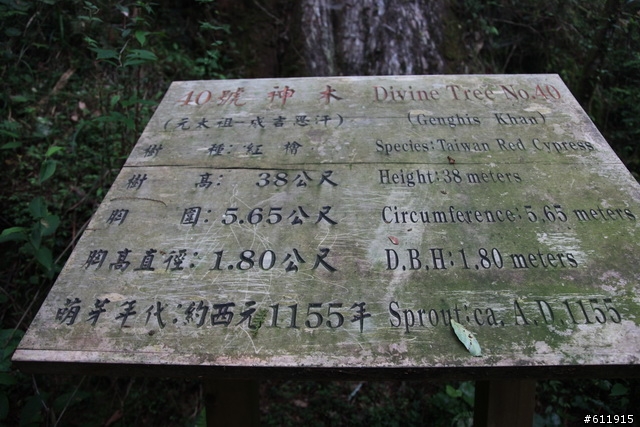 40號 神 木 Divine Tree No.40
(元太祖-成吉思汗) (Genghis Khan)
樹 種: 紅 檜 Species:Taiwan Red Cypress
樹 高: 38公尺 Height:38 meters
胸 圍: 5.65公尺 Circumference:5.65 meters
胸高直徑: 1.80公尺 D.B.H:1.80 meters
萌芽年代:約西元1155年 Sprout:ca, A.D.1155
#611915